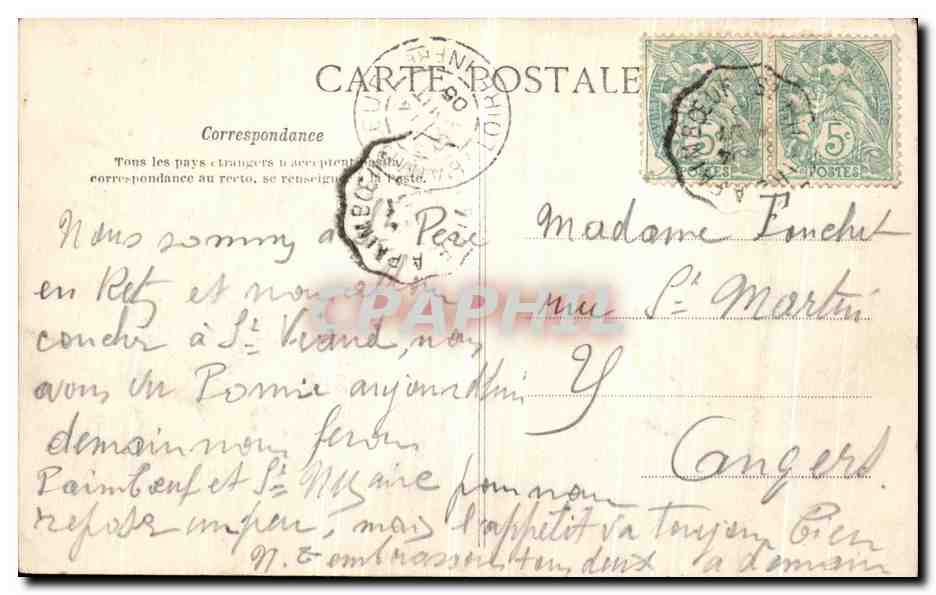 CARTE POSTALE
Correspondance
Tous les pays étrangers n'acceptent pas la
correspondance au recto, se renseigner à la Poste.
5c 5c
POSTES POSTES
PAIMBŒUF A
PAIMBŒUF A
05
Nous sommes à St Père
en Retz et nous allons
coucher à St Viaud, nous
avons vu Pornic aujourd'hui
demain nous ferons
Paimbœuf et St Nazaire pour nous
reposer un peu, mais l'appétit va toujours bien
N. t'embrassons tous deux à demain
Madame Fouchet
rue St Martin
Y
Angers
CPAPHIL